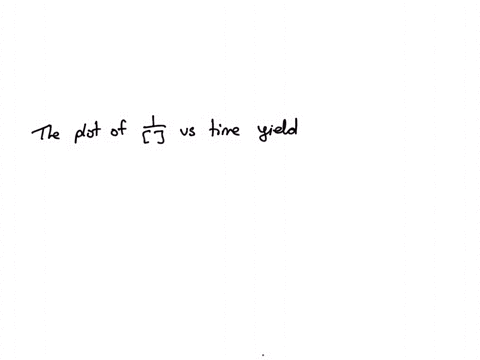 The plot of 1/[ ] vs time yield